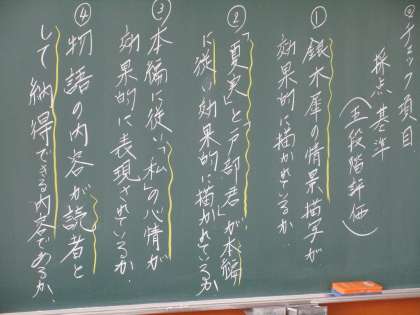 ◎チェック項目
採点基準
(五段階評価)
①銀木犀の情景描写が
効果的に描かれているか.
②「夏実」と「戸部君」が本編
に沿い効果的に描かれているか
③本編に従い「私」の心情が
効果的に表現されているか.
④物語の内容が読者と
して納得できる内容であるか.